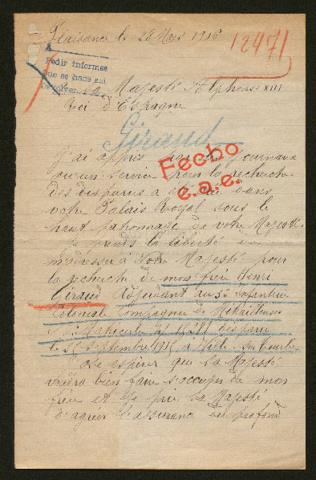 Plaisance le 28 Mars 1916
12471
Pedir informes
que se hace en
A Sa Majesté Alphonse XIII
Roi d'Espagne
Giraud
J'ai appris par les journaux
qu'un service pour la recherche
des disparus a été créé dans
votre Palais Royal sous le
haut patronage de votre Majesté
Fecho
e.a.e.
Je prends la liberté de
m'adresser à Votre Majesté pour
la recherche de mon frère Henri
Giraud Adjudant au 5e Infanterie
Coloniale Compagnie de Mitrailleuses
Matricule disparu
le 25 septembre 1915 à
J'ose espérer que Sa Majesté
voudra bien faire s'occuper de mon
frère et je prie Sa Majesté
d'agréer l'assurance de profond